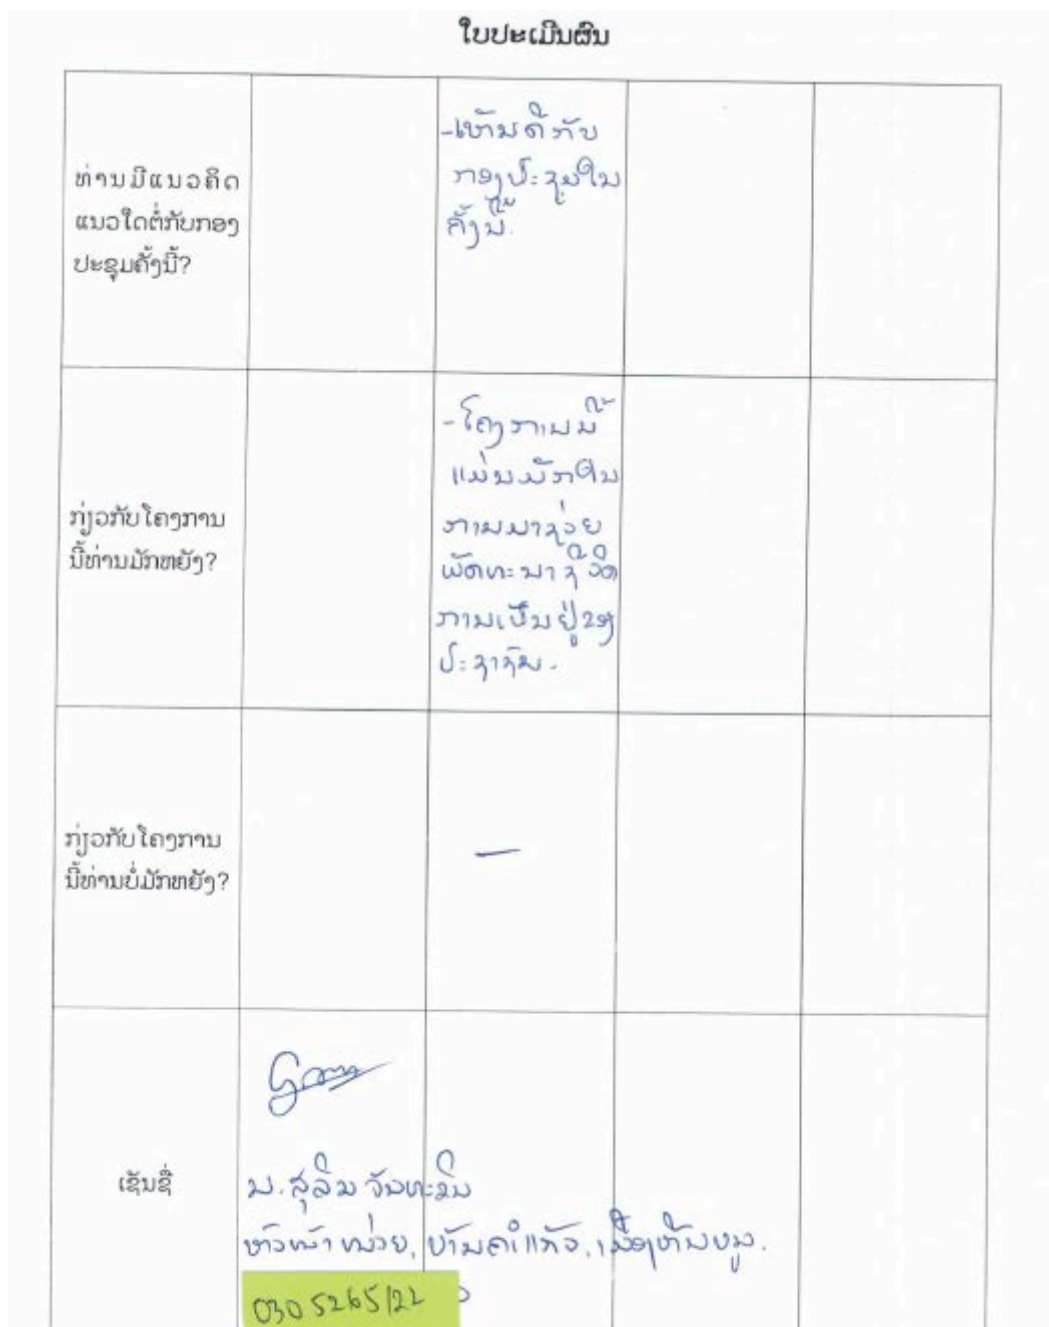 ໃບປະເມີນຜົນ
ທ່ານມີແນວຄິດ
ແນວໃດຕໍ່ກັບກອງ
ປະຊຸມຄັ້ງນີ້?
-ເຫັນດີກັບ
ກອງປະຊຸມໃນ
ຄັ້ງນີ້.
ກ່ຽວກັບໂຄງການ
ນີ້ທ່ານມັກຫຍັງ?
-ໂຄງການນີ້
ແມ່ນມັກໃນ
ການມາຊ່ວຍ
ພັດທະນາຊີວິດ
ການເປັນຢູ່ຂອງ
ປະຊາຊົນ.
ກ່ຽວກັບໂຄງການ
ນີ້ທ່ານບໍ່ມັກຫຍັງ?
—
ເຊັນຊື່
ນ. ສຸລິມ ຈັນທະລິນ
ຫົວໜ້າໜ່ວຍ, ບ້ານຄຳແກ້ວ, ເມືອງຫີນບູນ.
030 5265122